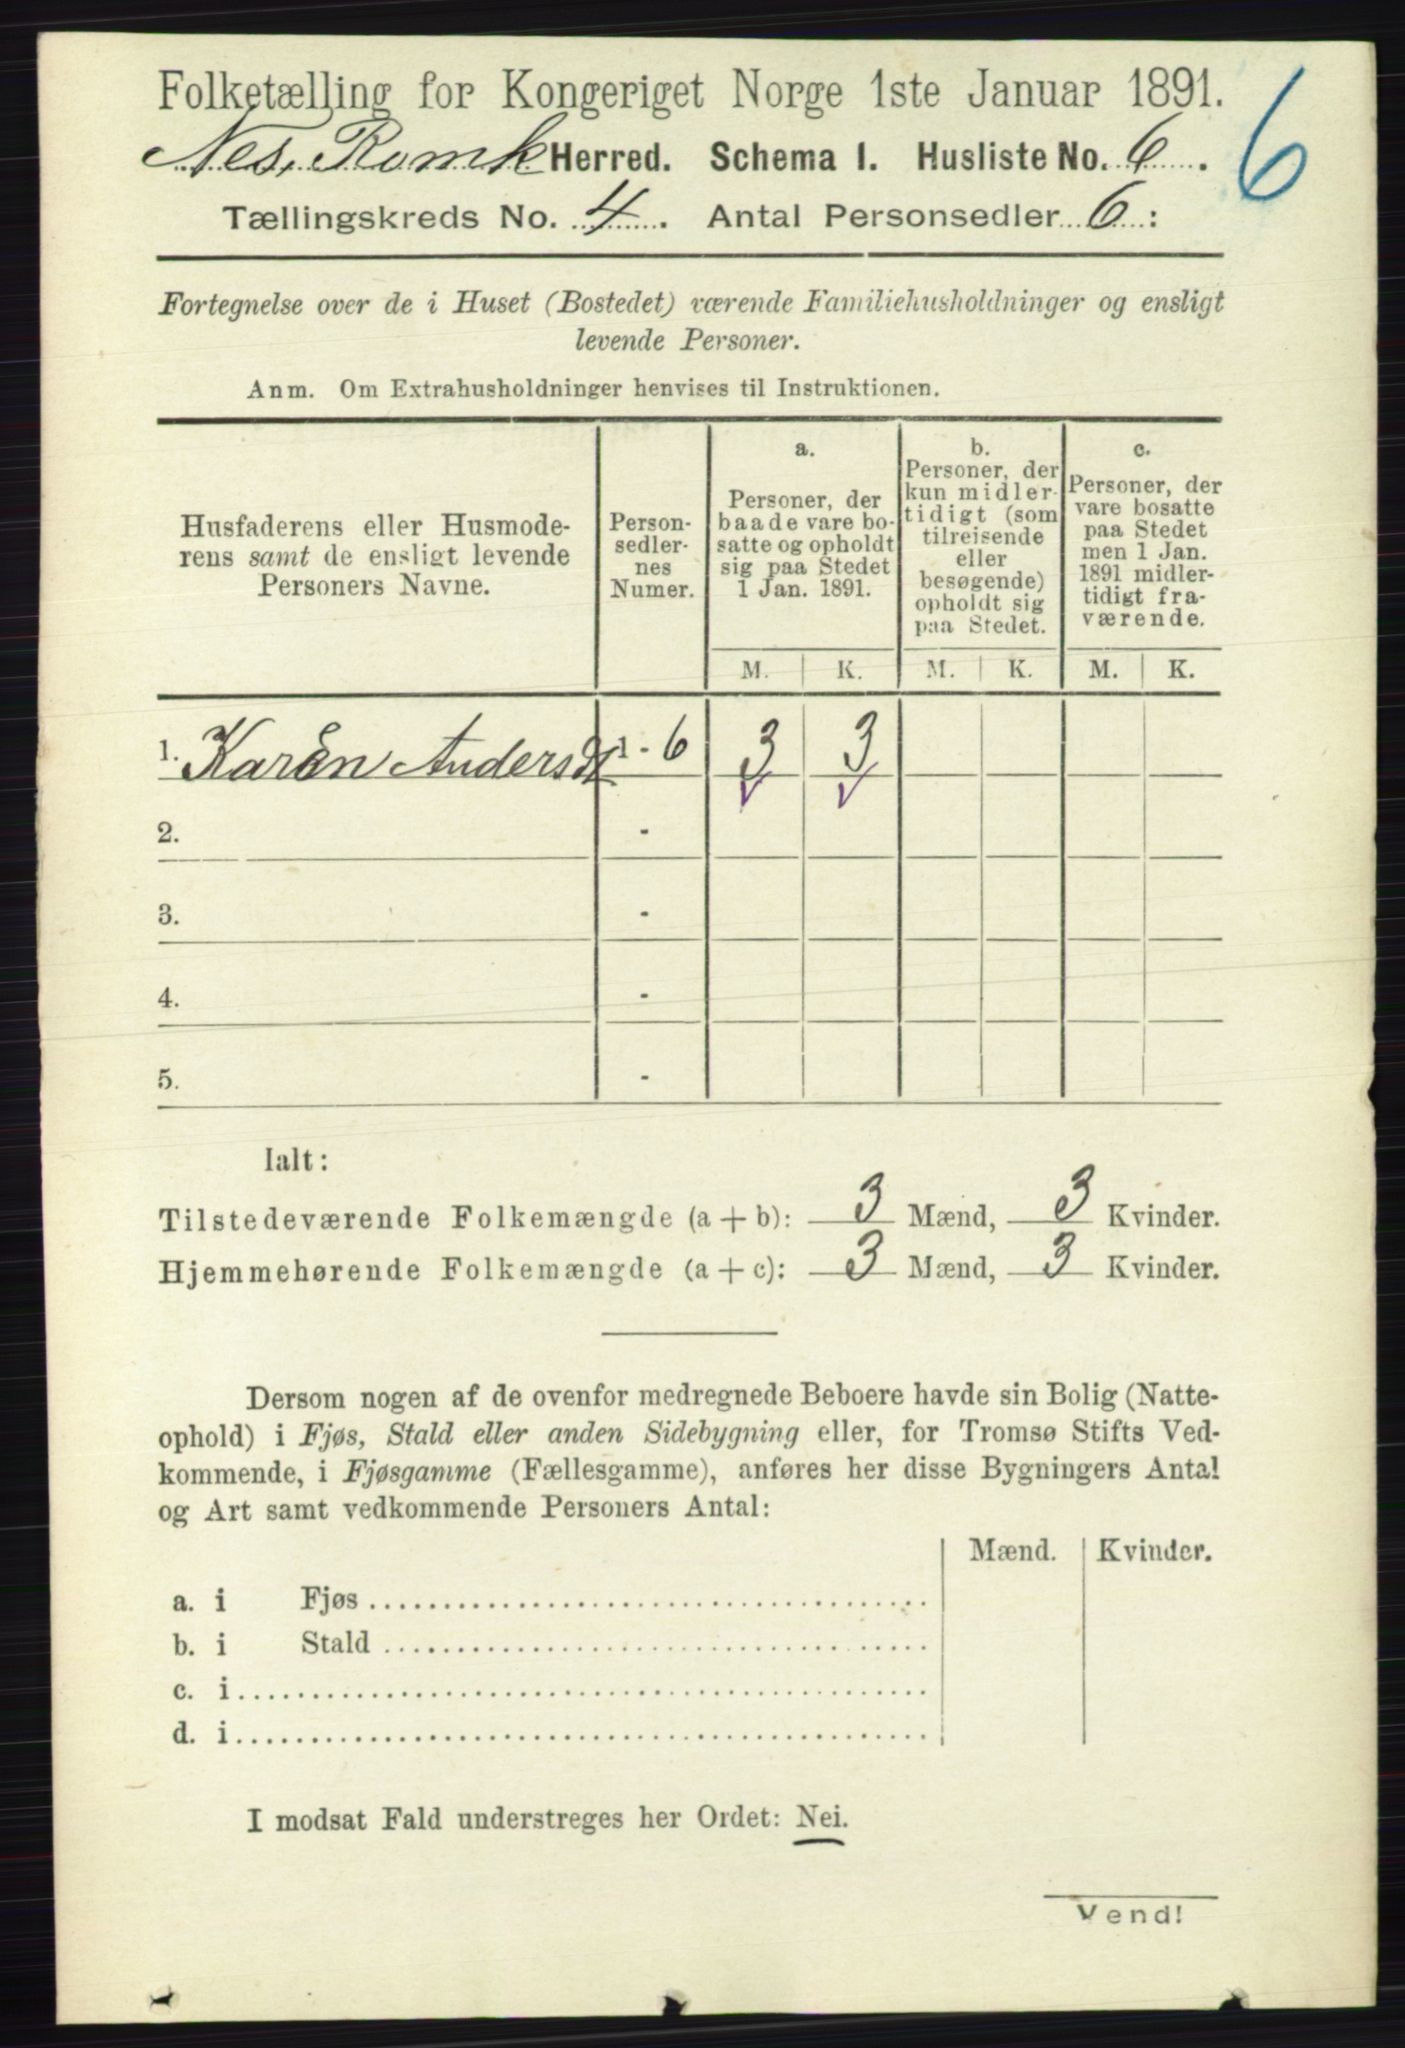 Folketælling for Kongeriget Norge 1ste Januar 1891.
Nes, Romk Herred. Schema 1. Husliste No. 6.
6
Tællingskreds No. 4. Antal Personsedler 6:
Fortegnelse over de i Huset (Bostedet) værende Familiehusholdninger og ensligt
levende Personer.
Anm. Om Extrahusholdninger henvises til Instruktionen.
Husfaderens eller Husmode-
rens samt de ensligt levende
Personers Navne.
Person-
sedler-
nes
Numer.
a.
Personer, der
baade vare bo-
satte og opholdt
sig paa Stedet
1 Jan. 1891.
b.
Personer, der
kun midler-
tidigt (som
tilreisende
eller
besøgende)
opholdt sig
paa Stedet.
c.
Personer, der
vare bosatte
paa Stedet
men 1 Jan.
1891 midler-
tidigt fra-
værende.
M. K. M. K. M. K.
1. Karen Andersdt 1 - 6 3 3
2. -
3. -
4. -
5. -
Ialt:
Tilstedeværende Folkemængde (a + b): 3 Mænd, 3 Kvinder.
Hjemmehørende Folkemængde (a + c): 3 Mænd, 3 Kvinder.
Dersom nogen af de ovenfor medregnede Beboere havde sin Bolig (Natte-
ophold) i Fjøs, Stald eller anden Sidebygning eller, for Tromsø Stifts Ved-
kommende, i Fjøsgamme (Fællesgamme), anføres her disse Bygningers Antal
og Art samt vedkommende Personers Antal:
Mænd. Kvinder.
a. i Fjøs
b. i Stald
c. i
d. i
I modsat Fald understreges her Ordet: Nei.
Vend!